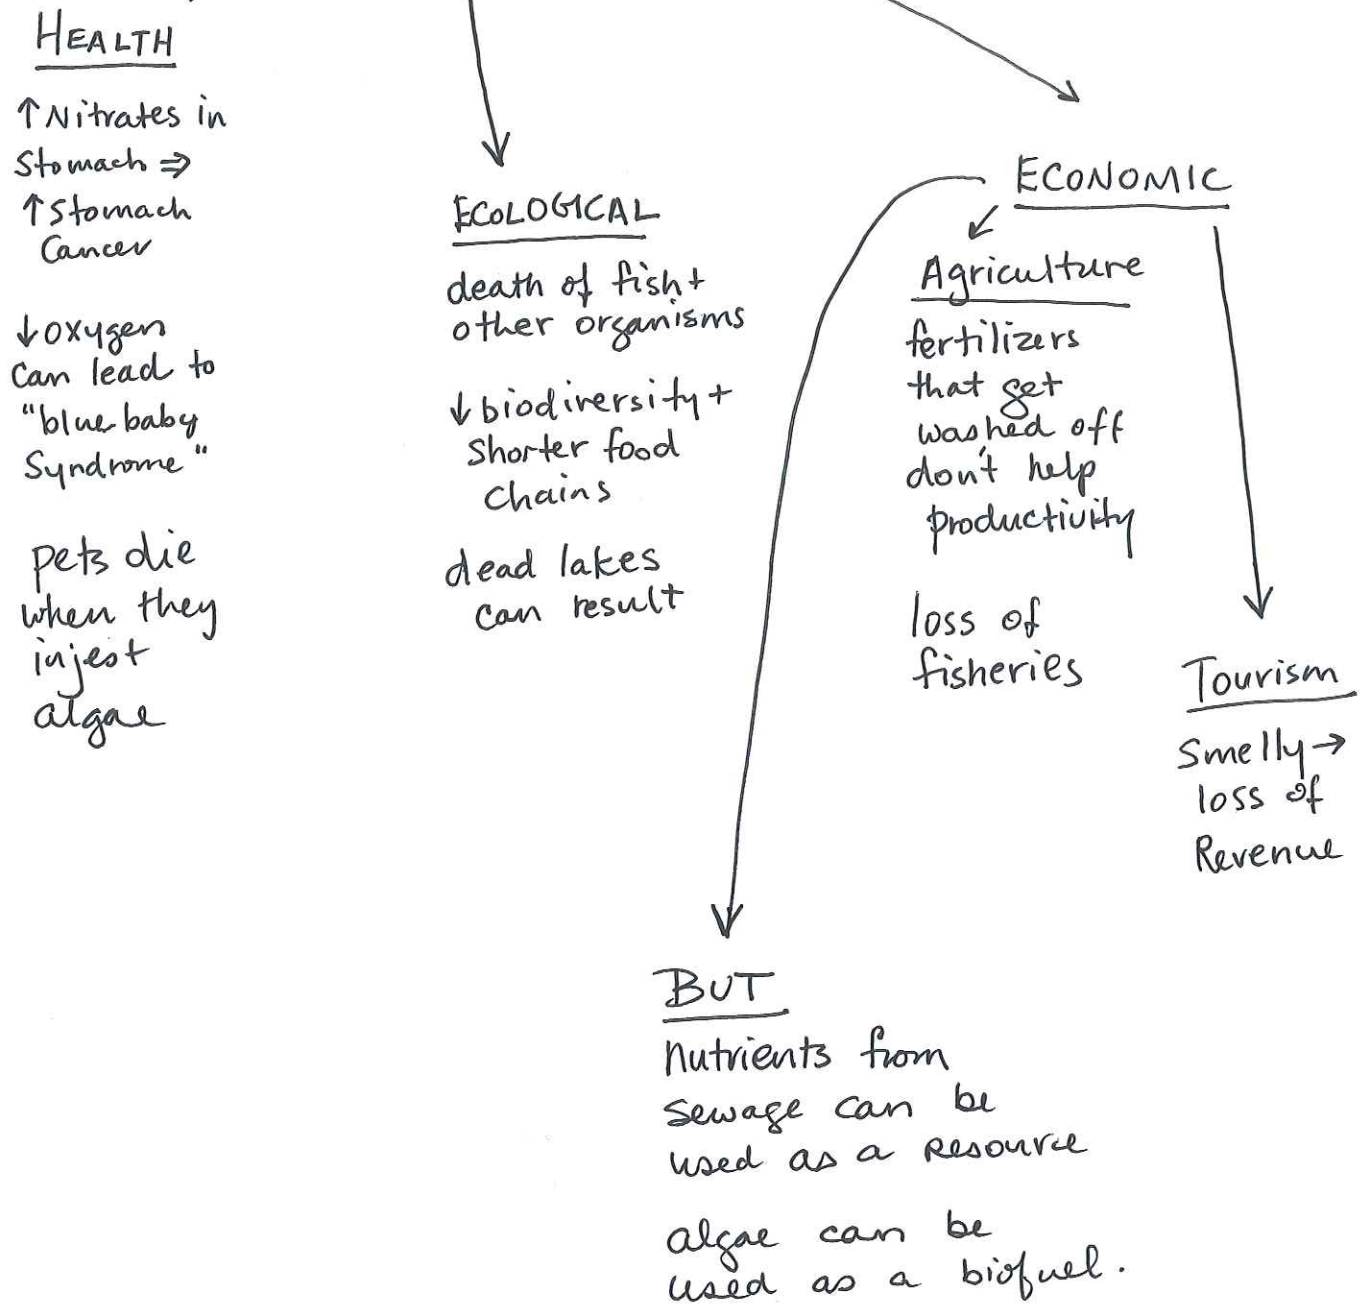 HEALTH
↑ Nitrates in
Stomach ⇒
↑ Stomach
Cancer
↓ oxygen
can lead to
"blue baby
Syndrome"
pets die
when they
injest
algae
ECOLOGICAL
death of fish +
other organisms
↓ biodiversity +
shorter food
chains
dead lakes
can result
ECONOMIC
Agriculture
fertilizers
that get
washed off
don't help
productivity
loss of
fisheries
Tourism
Smelly →
loss of
Revenue
BUT
nutrients from
sewage can be
used as a resource
algae can be
used as a biofuel.